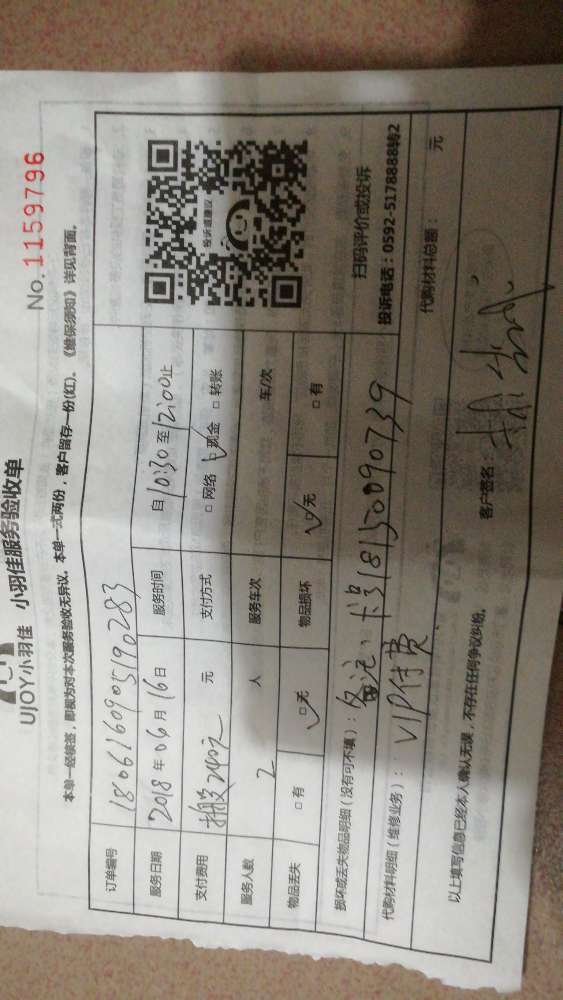 No. 1159796
UJOY小羽佳 小羽佳服务验收单
本单一经核签，即视为对本次服务验收无异议。本单一式两份，客户留存一份(红)。《维保须知》详见背面。
订单编号 180616090519 0283
服务日期 2018年06月16日 服务时间 自10:30至12:00止
支付费用 搬家240元 元 支付方式 □ 网络 ☑ 现金 □ 转账
服务人数 2 人 服务车次 车/次
物品丢失 □ 有 ☑ 无 物品损坏 ☑ 无 □ 有
投诉或建议
扫码评价或投诉
投诉电话：0592-5178888转2
损坏或丢失物品明细（没有可不填）：备注：卡号18150090739
代购材料明细（维修业务）：VIP付费 代购材料总额： 元
以上填写信息已经本人确认无误，不存在任何争议纠纷。
客户签名：